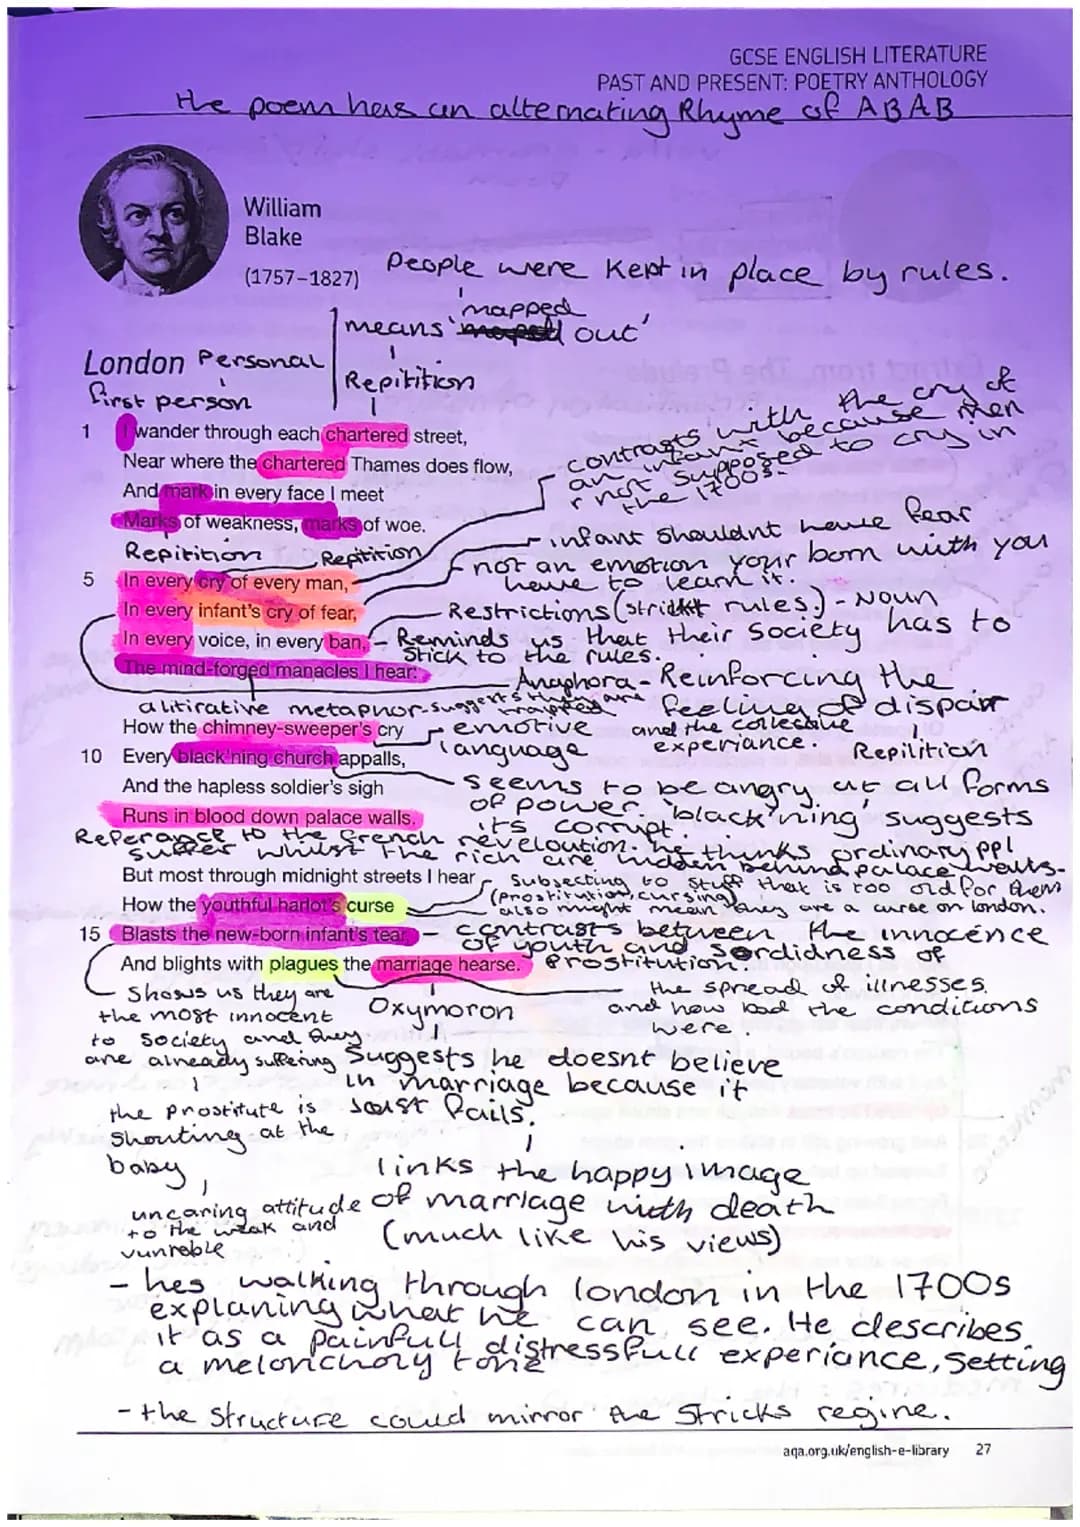 GCSE ENGLISH LITERATURE
PAST AND PRESENT: POETRY ANTHOLOGY
the poem has an alternating Rhyme of ABAB
William
Blake
(1757–1827)
People were kept in place by rules.
'mapped
means out'
London Personal
first person
Repitition
1 I wander through each chartered street,
Near where the chartered Thames does flow,
And mark in every face I meet
Marks of weakness, marks of woe.
contrasts with the cry of
an infant because men
r not supposed to cry in
the 1700s.
Repitition
Repitition
infant shouldnt have fear
not an emotion your born with you
have to learn it.
5 In every cry of every man,
In every infant's cry of fear,
In every voice, in every ban,
The mind-forged manacles I hear:
Restrictions (strickt rules.) - Noun
Reminds us that their society has to
stick to the rules.
Anaphora - Reinforcing the
feeling of dispair
and the collective
experiance.
Repilition
alitirative metaphor - suggest's they are
trapped
emotive
language
How the chimney-sweeper's cry
10 Every black'ning church appalls,
And the hapless soldier's sigh
Runs in blood down palace walls.
seems to be angry at all forms
of power. 'black'ning' suggests
its corrupt.
Referance to the french reveloution. he thinks ordinary ppl
suffer whilst the rich are hidden behind palace walls.
But most through midnight streets I hear
How the youthful harlot's curse
15 Blasts the new-born infant's tear,
And blights with plagues the marriage hearse.
Subjecting to stuff that is too old for them
(prostitution, cursing)
also might mean they are a curse on london.
contrasts between the innocence
of youth and sordidness of
prostitution.
the spread of illnesses.
and how bad the conditions
were.
Shows us they are
the most innocent
to society and they
are already suffering
Oxymoron
Suggests he doesnt believe
in marriage because it
just fails.
the prostitute is
shouting at the
baby
uncaring attitude
to the weak and
vunreble
links the happy image
of marriage with death
(much like his views)
- hes walking through london in the 1700s
explaning what he can see. He describes
it as a painfull distressfull experiance, setting
a melonchory tone
- the structure could mirror the stricks regine.
aqa.org.uk/english-e-library 27